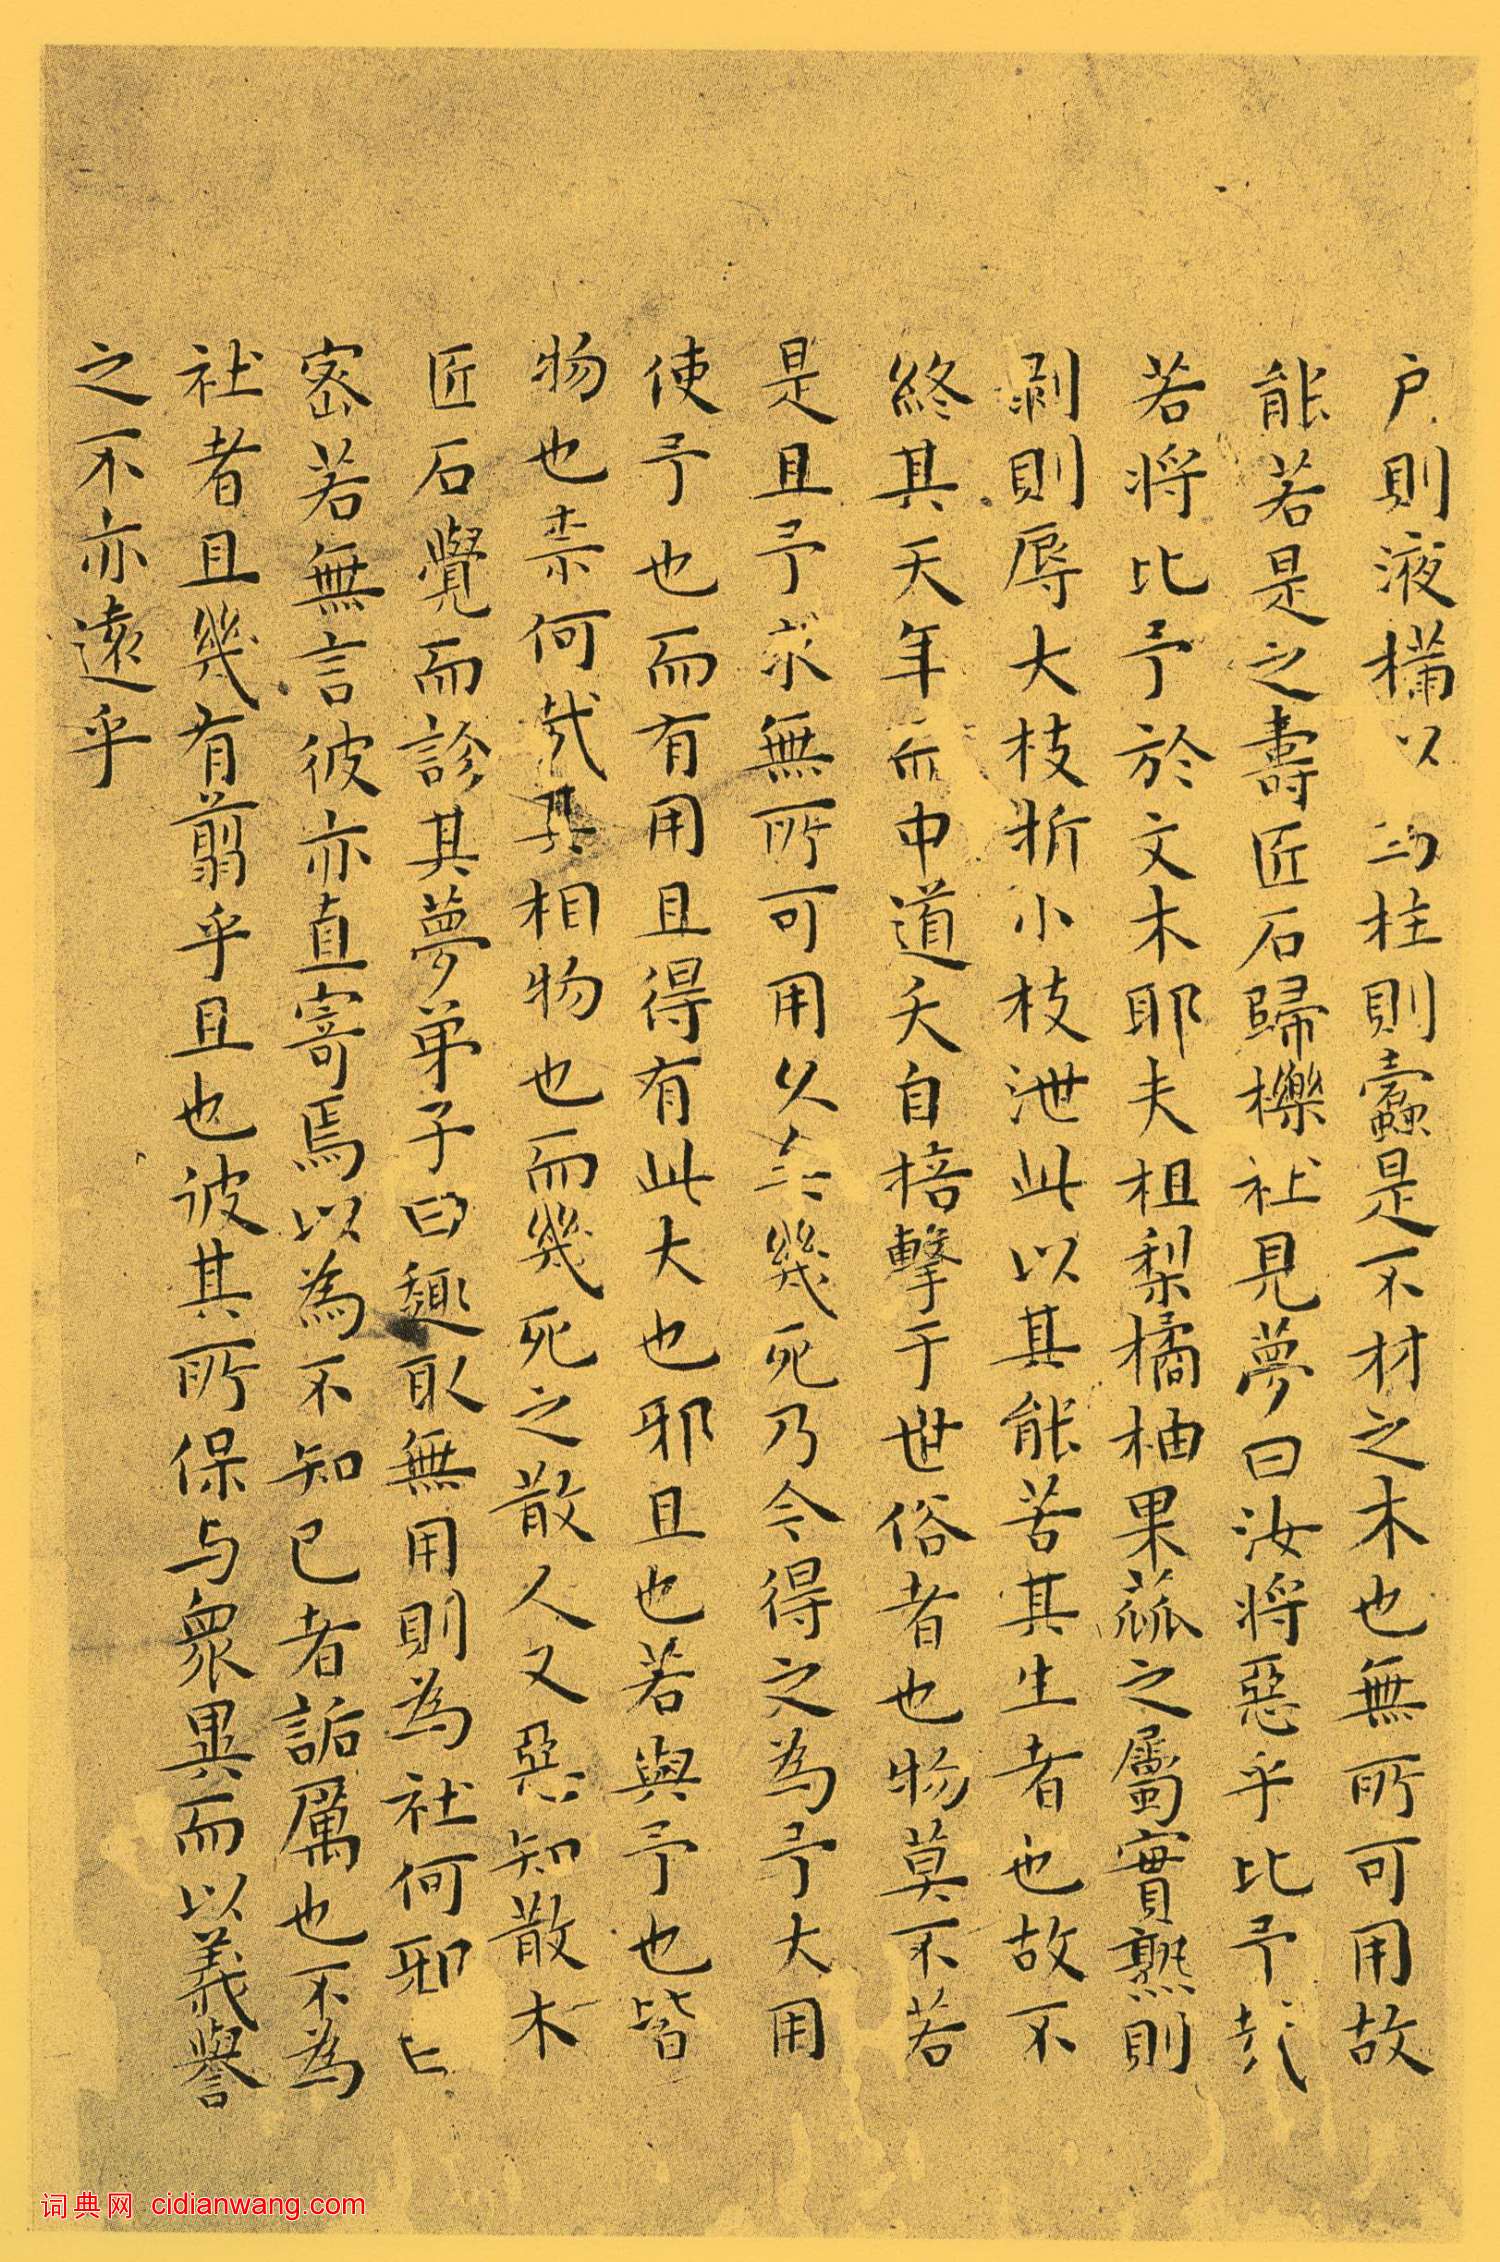 戶則液樠以為柱則蠹是不材之木也無所可用故
能若是之壽匠石歸櫟社見夢曰汝將惡乎比予
若將比予於文木耶夫柤梨橘柚果蓏之屬實熟則
剥則辱大枝折小枝泄此以其能苦其生者也故不
終其天年而中道夭自掊擊于世俗者也物莫不若
是且予求無所可用久矣幾死乃今得之為予大用
使予也而有用且得有此大也邪且也若與予也皆
物也柰何哉其相物也而幾死之散人又惡知散木
匠石覺而診其夢弟子曰趣取無用則為社何邪曰
密若無言彼亦直寄焉以為不知已者詬厲也不為
社者且幾有翦乎且也彼其所保与眾異而以義譽
之不亦遠乎
词典网 cidianwang.com